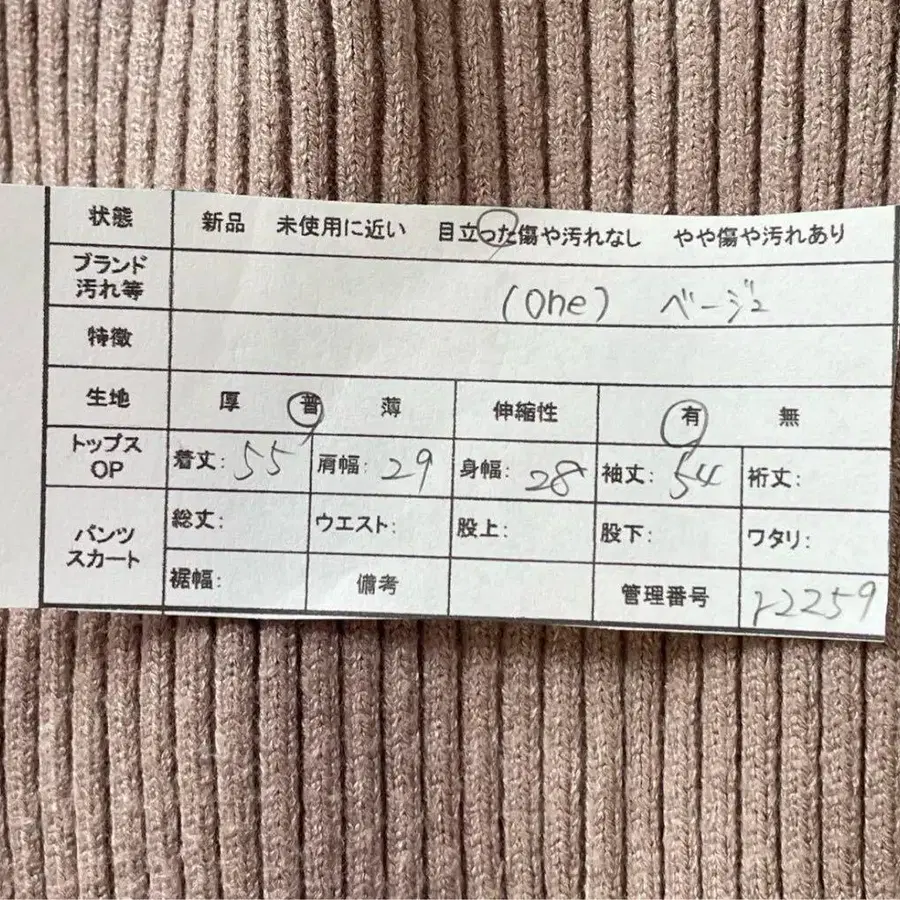 状態 新品 未使用に近い 目立った傷や汚れなし やや傷や汚れあり
ブランド
汚れ等 (One) ベージュ
特徴
生地 厚 普 薄 伸縮性 有 無
トップス
OP 着丈: 55 肩幅: 29 身幅: 28 袖丈: 54 裄丈:
パンツ
スカート 総丈: ウエスト: 股上: 股下: ワタリ:
裾幅: 備考 管理番号 r2259